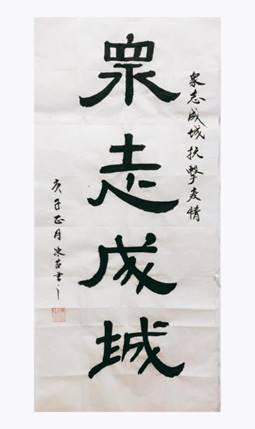 眾志成城抗擊疫情
眾志成城
庚子正月